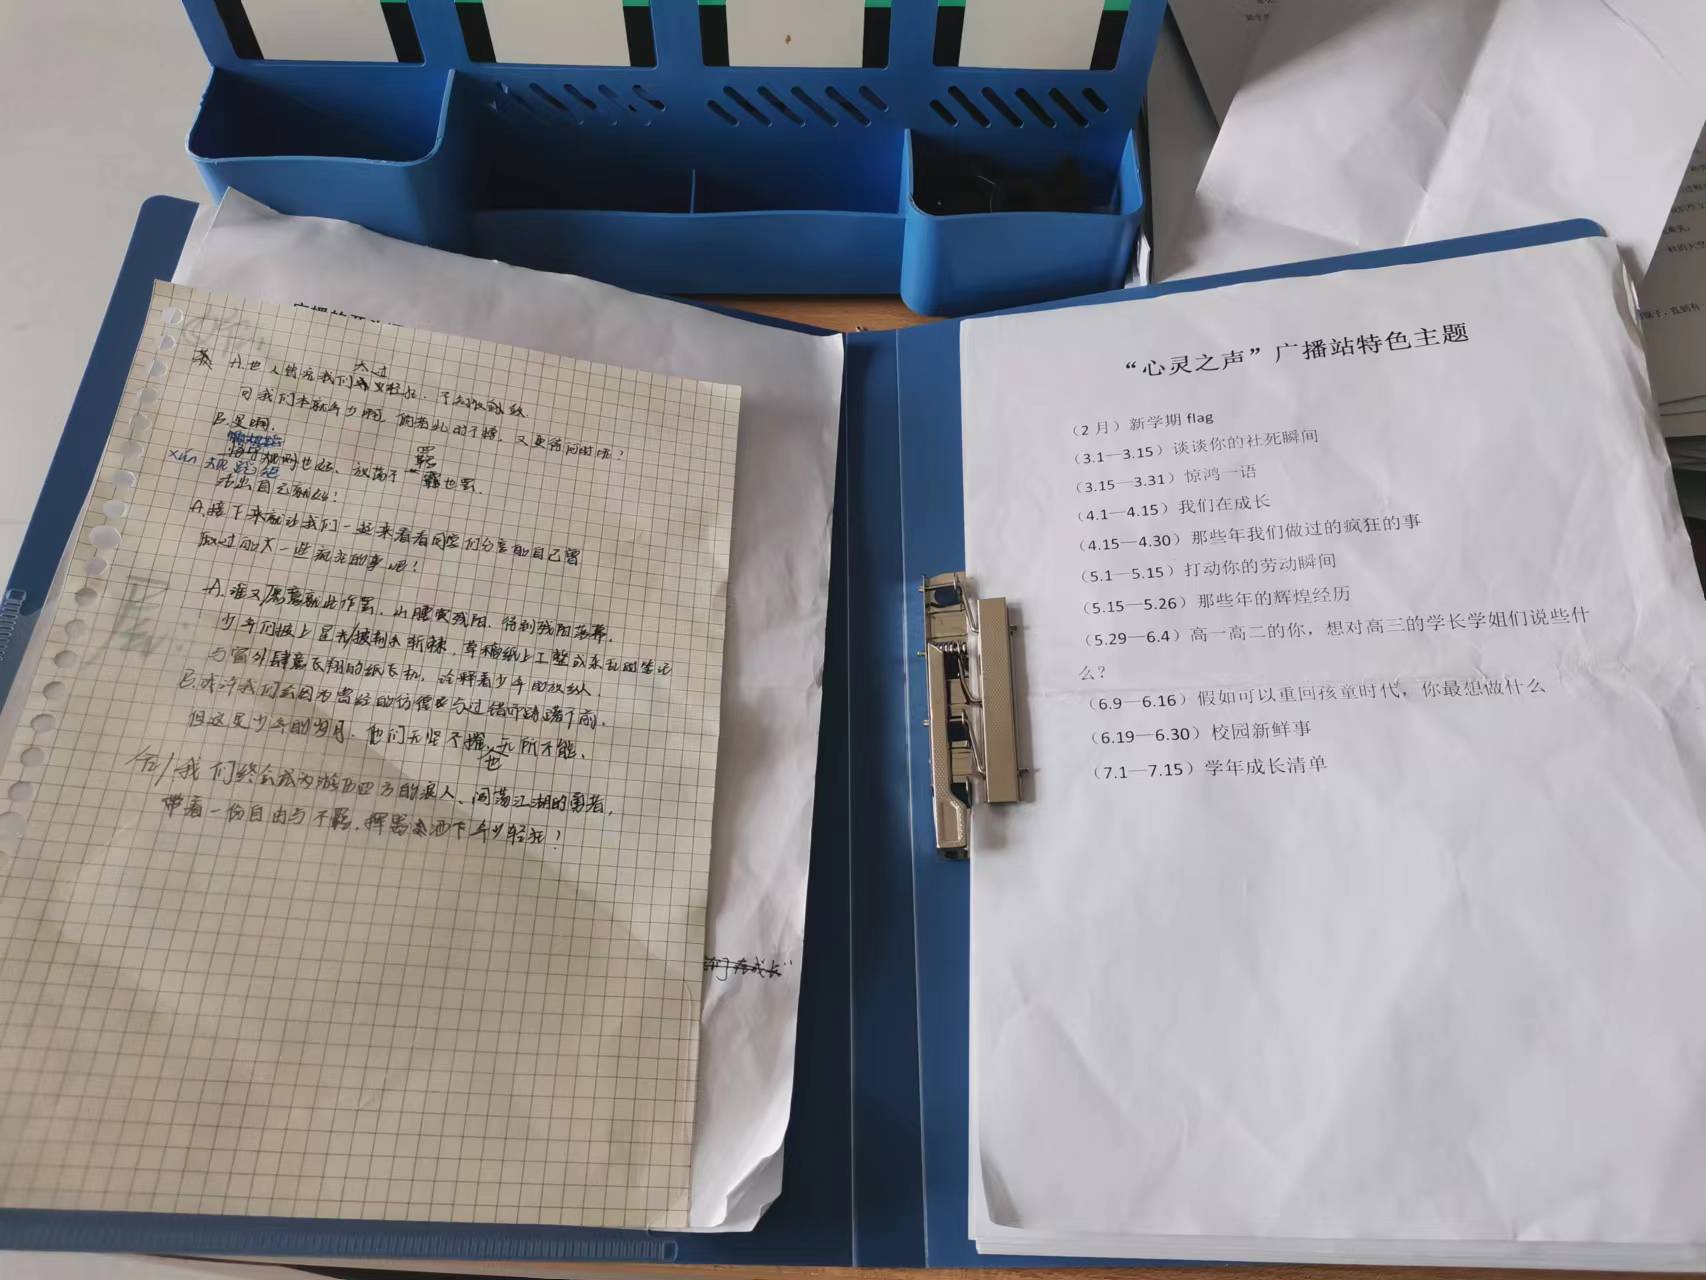 A.世人皆充我们太过轻狂，不知收敛
可我们本就年少啊，倘若此时不狂，又更待何时呢？
B.是啊，
xún 规蹈矩
循守规则也好，放荡不羁也罢，
活出自己就好！
A.接下来就让我们一起来看看同学们分享的自己曾
做过的一些疯狂的事吧！
A.谁又愿意就此作罢，山腰赏残阳，待到残阳落幕，
少年们披上星光披荆斩棘，草稿纸上工整或杂乱的笔记
与窗外肆意飞翔的纸飞机，诠释着少年的放纵，
B.或许我们会因为曾经的彷徨与过错而踌躇不前，
但这是少年的岁月，他们无坚不摧，也无所不能，
合/我们终会成为游历四方的浪人、闯荡江湖的勇者，
带着一份自由与不羁，挥墨洒下年少轻狂！
在成长”
“心灵之声”广播站特色主题
（2 月）新学期 flag
（3.1—3.15）谈谈你的社死瞬间
（3.15—3.31）惊鸿一语
（4.1—4.15）我们在成长
（4.15—4.30）那些年我们做过的疯狂的事
（5.1—5.15）打动你的劳动瞬间
（5.15—5.26）那些年的辉煌经历
（5.29—6.4）高一高二的你，想对高三的学长学姐们说些什
么？
（6.9—6.16）假如可以重回孩童时代，你最想做什么
（6.19—6.30）校园新鲜事
（7.1—7.15）学年成长清单